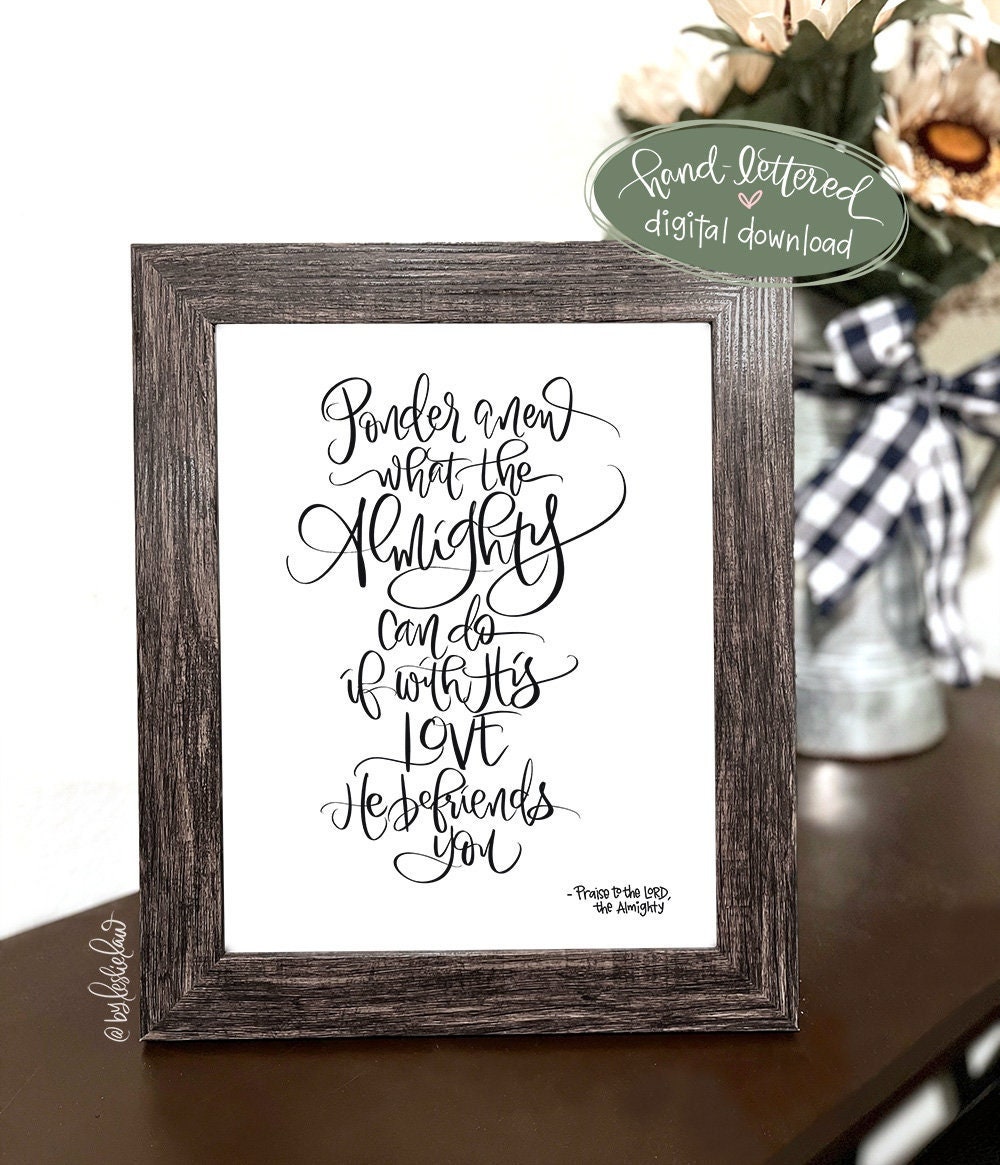 hand-lettered
digital download
Ponder anew
what the
Almighty
can do
if with His
LOVE
He befriends
you
- Praise to the LORD,
the Almighty
@byleslielaw